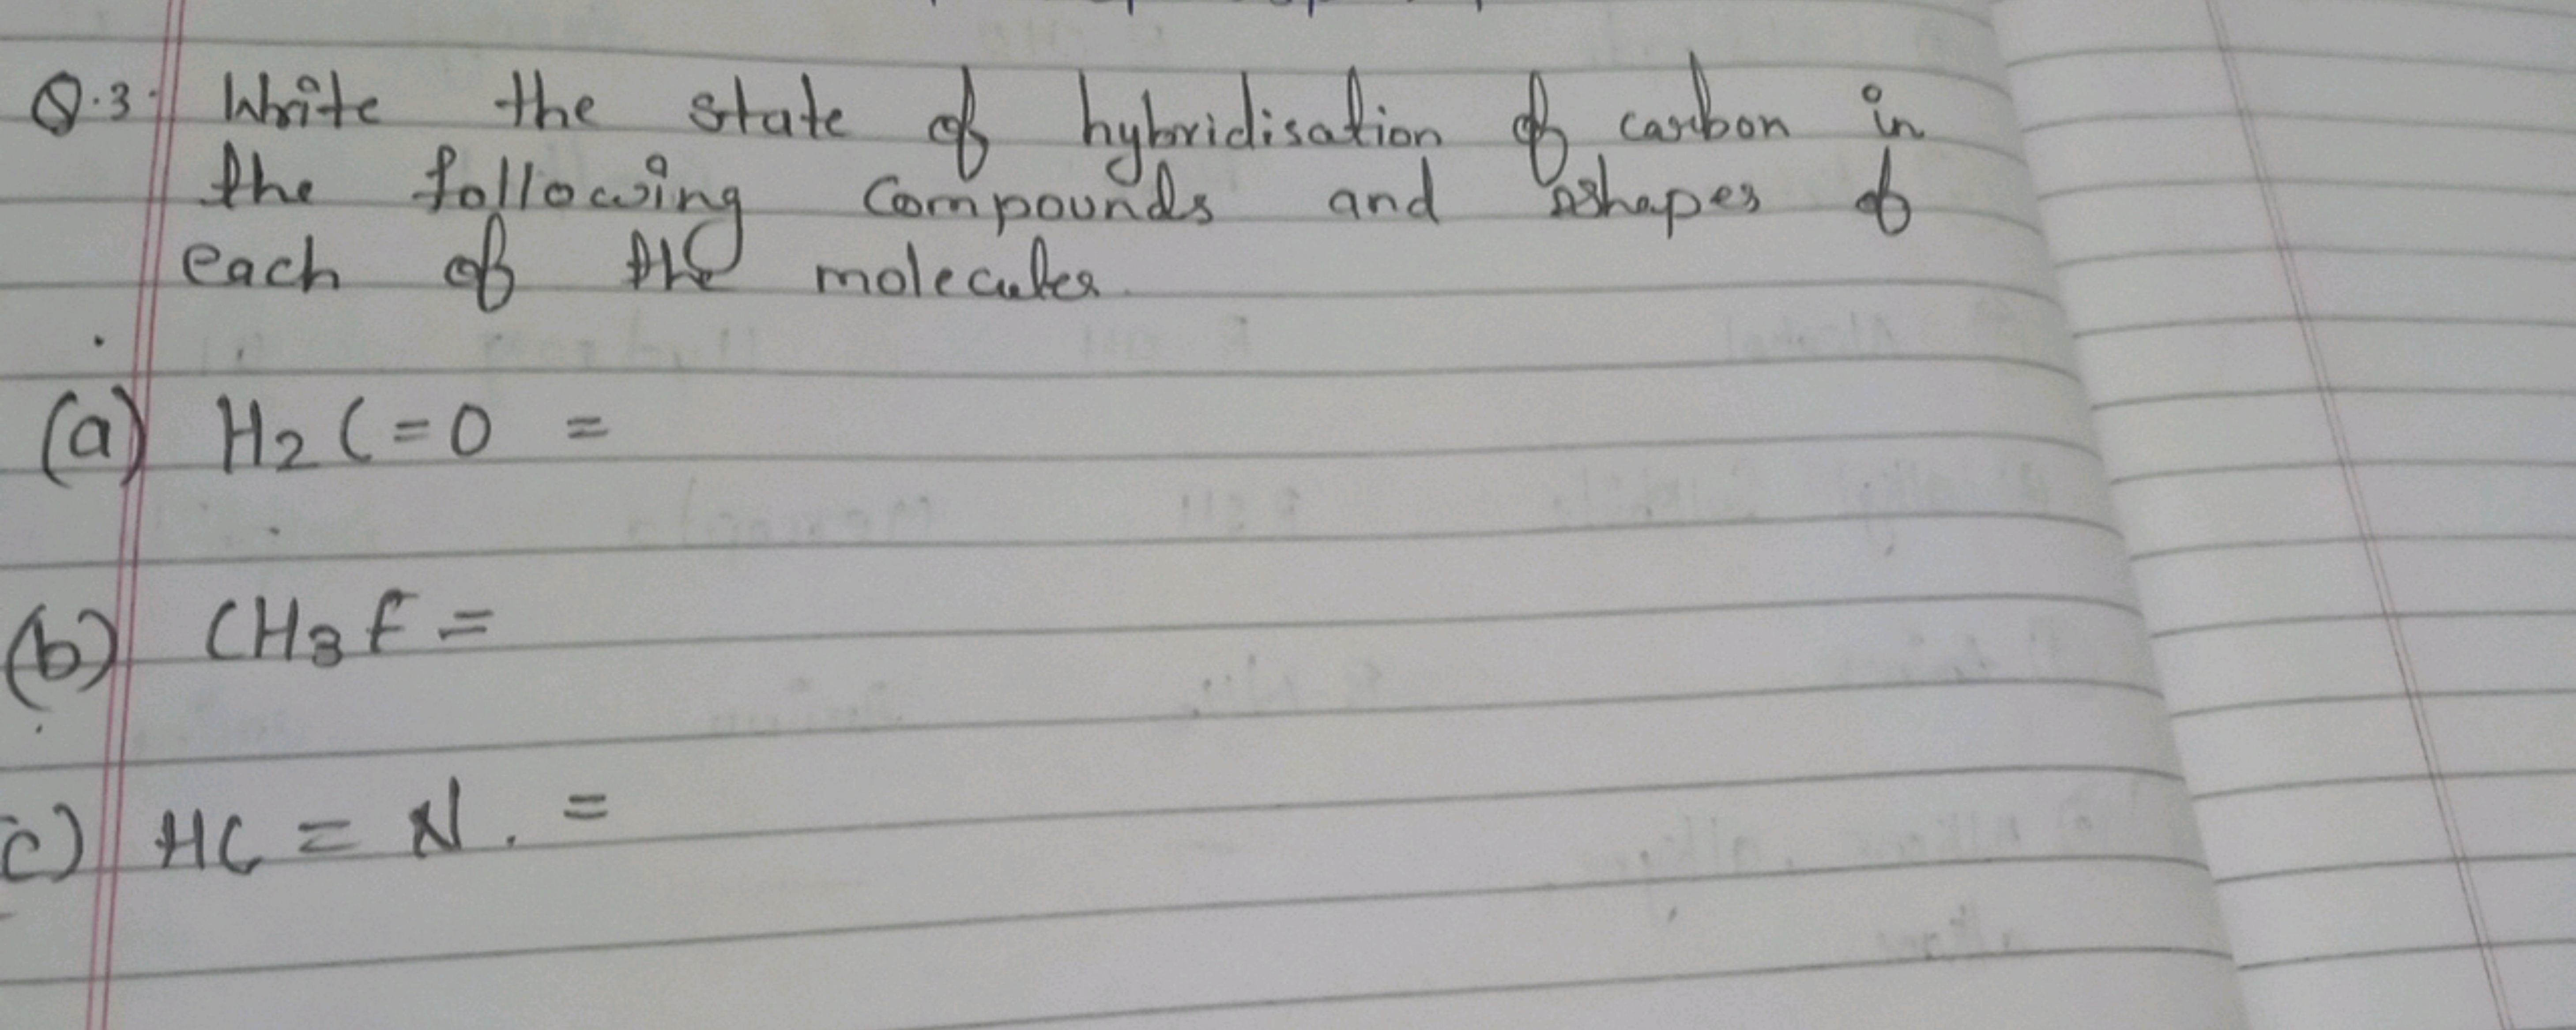 Q.3. Write the state of hybridisation of carbon in
the following compounds and shapes of
each of the molecules.
(a) H2C=O =
(b) CH3F =
c) HC = N. =